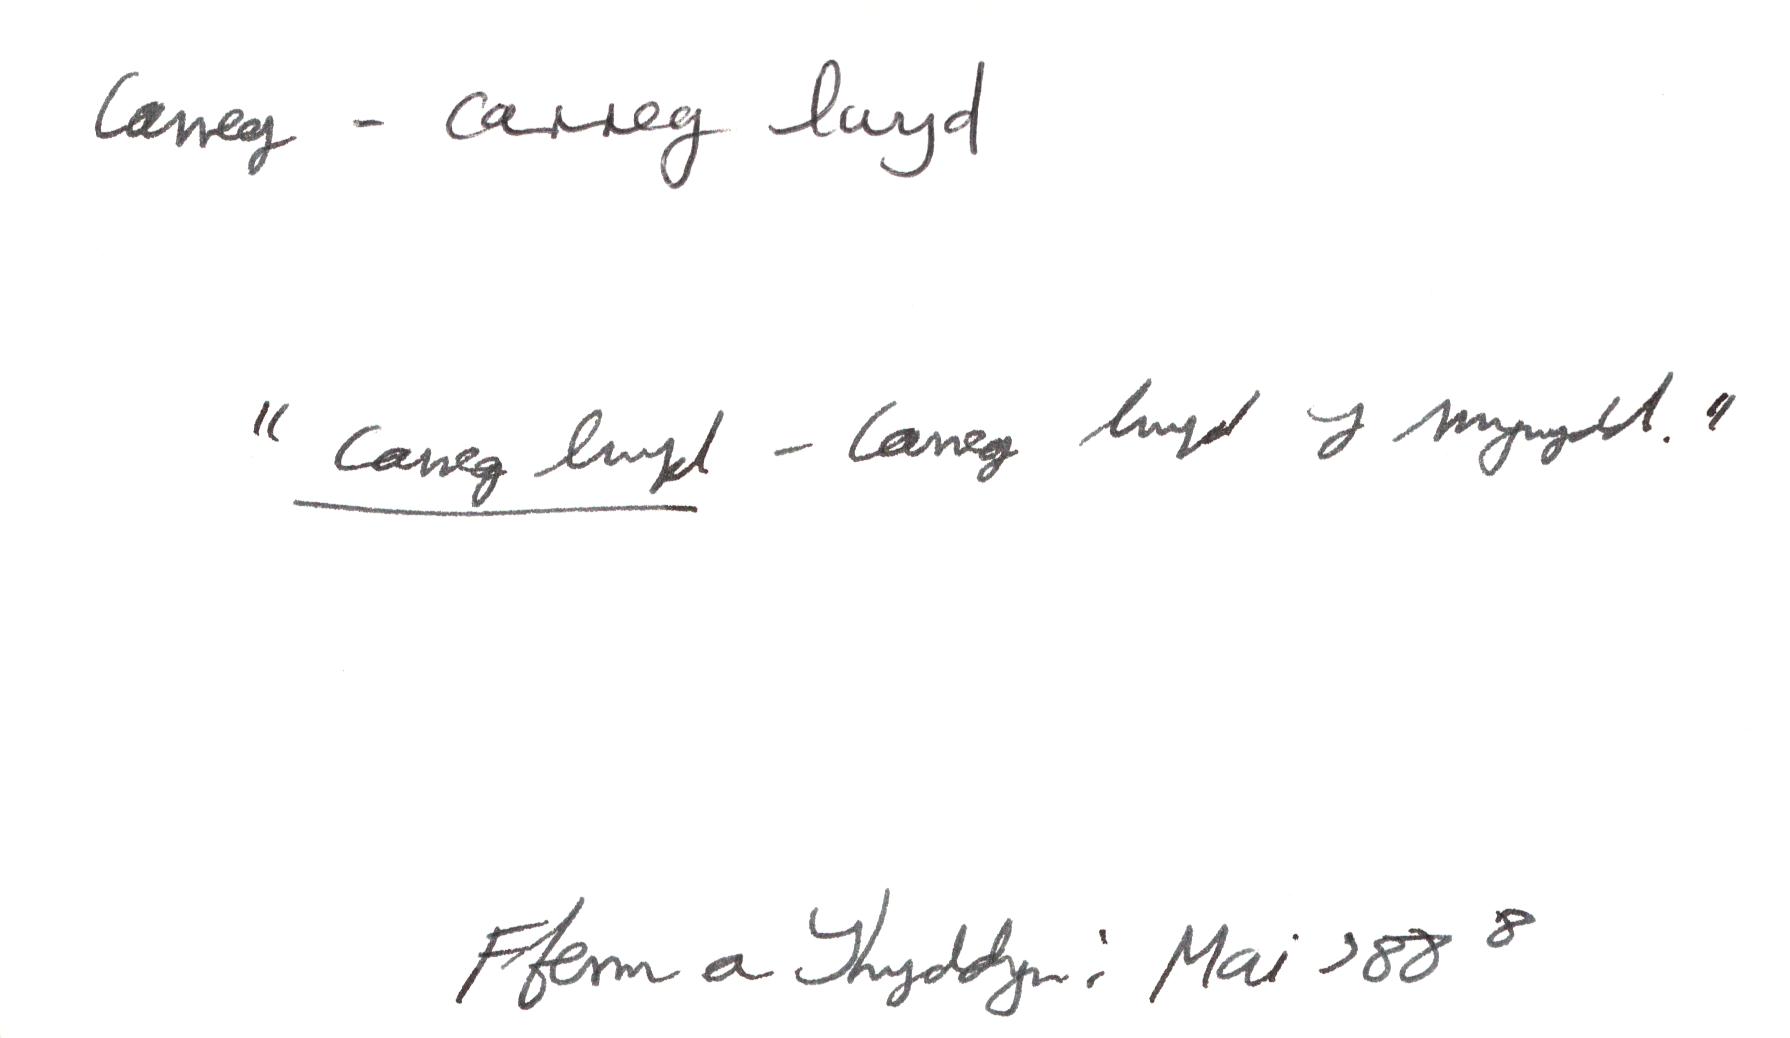 Carreg - carreg lwyd
"Carreg lwyd - Carreg lwyd y mynydd."
Fferm a Thyddyn: Mai '88 8